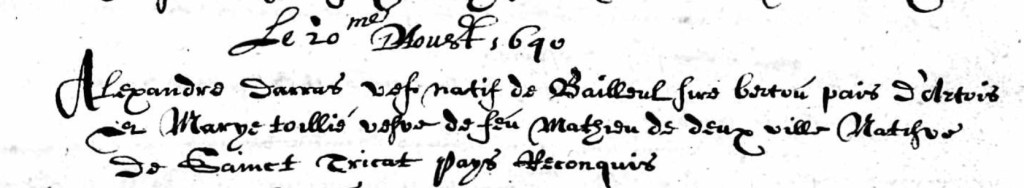 Le 20me D'Aoust 1640
Alexandre darras vef natif de Bailleul sire bertou païs d'Artois
Et Marye toillié vefve de feu Mathieu de deux ville Natifve
de Sainct Tricat pays Reconquis